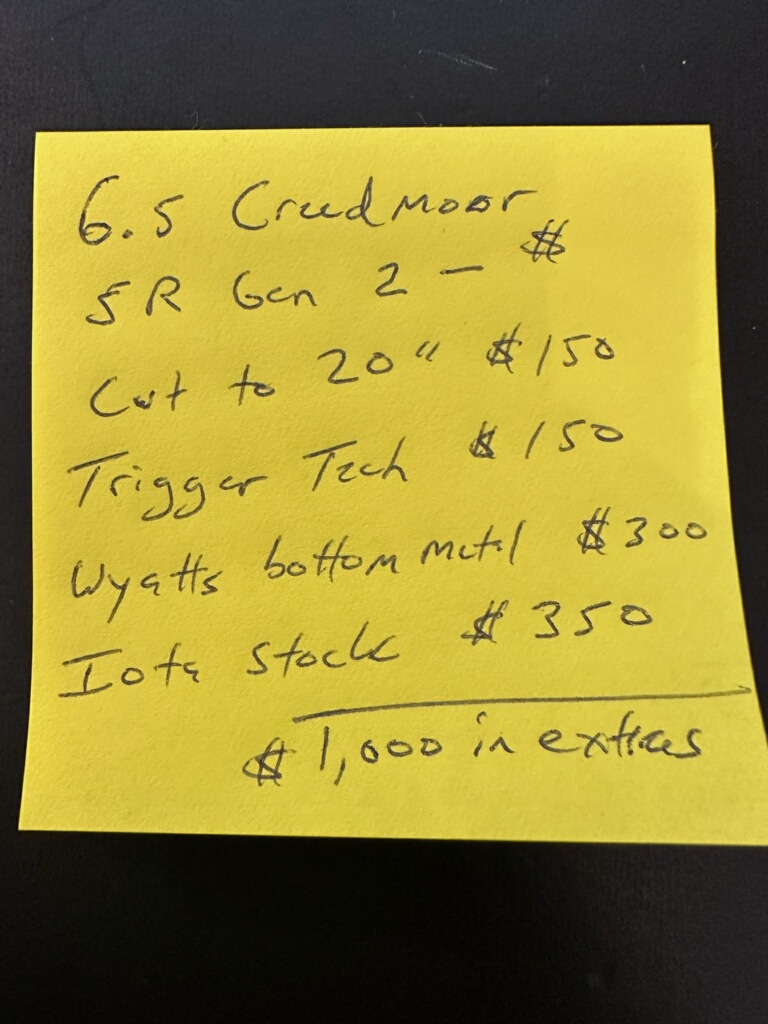 6.5 Creedmoor
5R Gen 2 - $
Cut to 20" $150
Trigger Tech $150
Wyatts bottom metal $300
Iota stock $350
$1,000 in extras